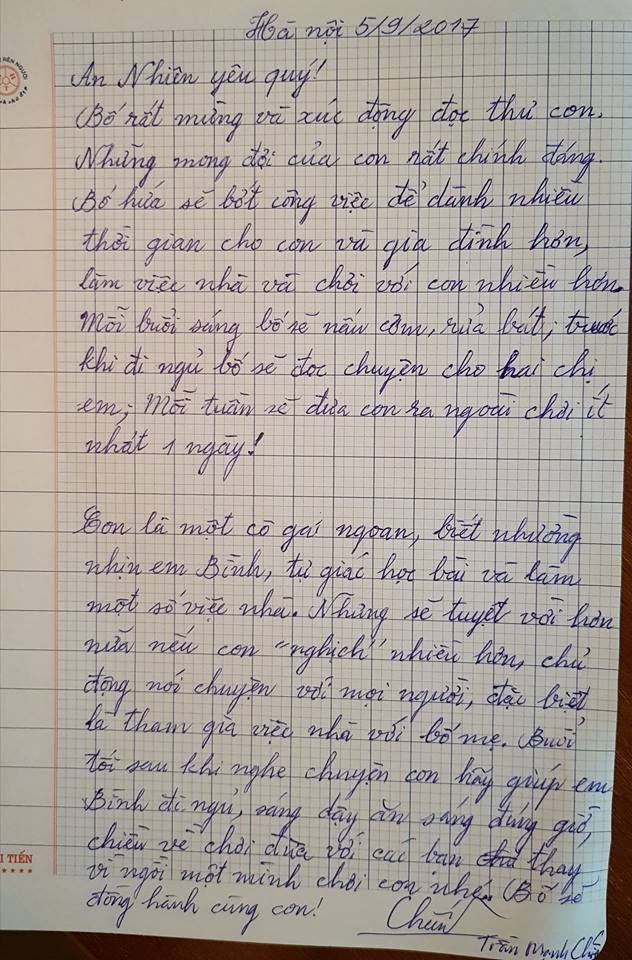 Hà nội 5/9/2017
An Nhiên yêu quý!
Bố rất mừng và xúc động đọc thư con.
Những mong đợi của con rất chính đáng.
Bố hứa sẽ bớt công việc để dành nhiều
thời gian cho con và gia đình hơn,
làm việc nhà và chơi với con nhiều hơn.
Mỗi buổi sáng bố sẽ nấu cơm, rửa bát; trước
khi đi ngủ bố sẽ đọc chuyện cho hai chị
em; Mỗi tuần sẽ đưa con ra ngoài chơi ít
nhất 1 ngày!
Con là một cô gái ngoan, biết nhường
nhịn em Bình, tự giác học bài và làm
một số việc nhà. Nhưng sẽ tuyệt vời hơn
nữa nếu con "nghịch" nhiều hơn, chủ
động nói chuyện với mọi người, đặc biệt
là tham gia việc nhà với bố mẹ. Buổi
tối sau khi nghe chuyện con hãy giúp em
Bình đi ngủ, sáng dậy ăn sáng đúng giờ,
chiều về chơi đùa với các bạn thay
vì ngồi một mình chơi con nhé. Bố sẽ
đồng hành cùng con!
Trần Mạnh
I TIẾN